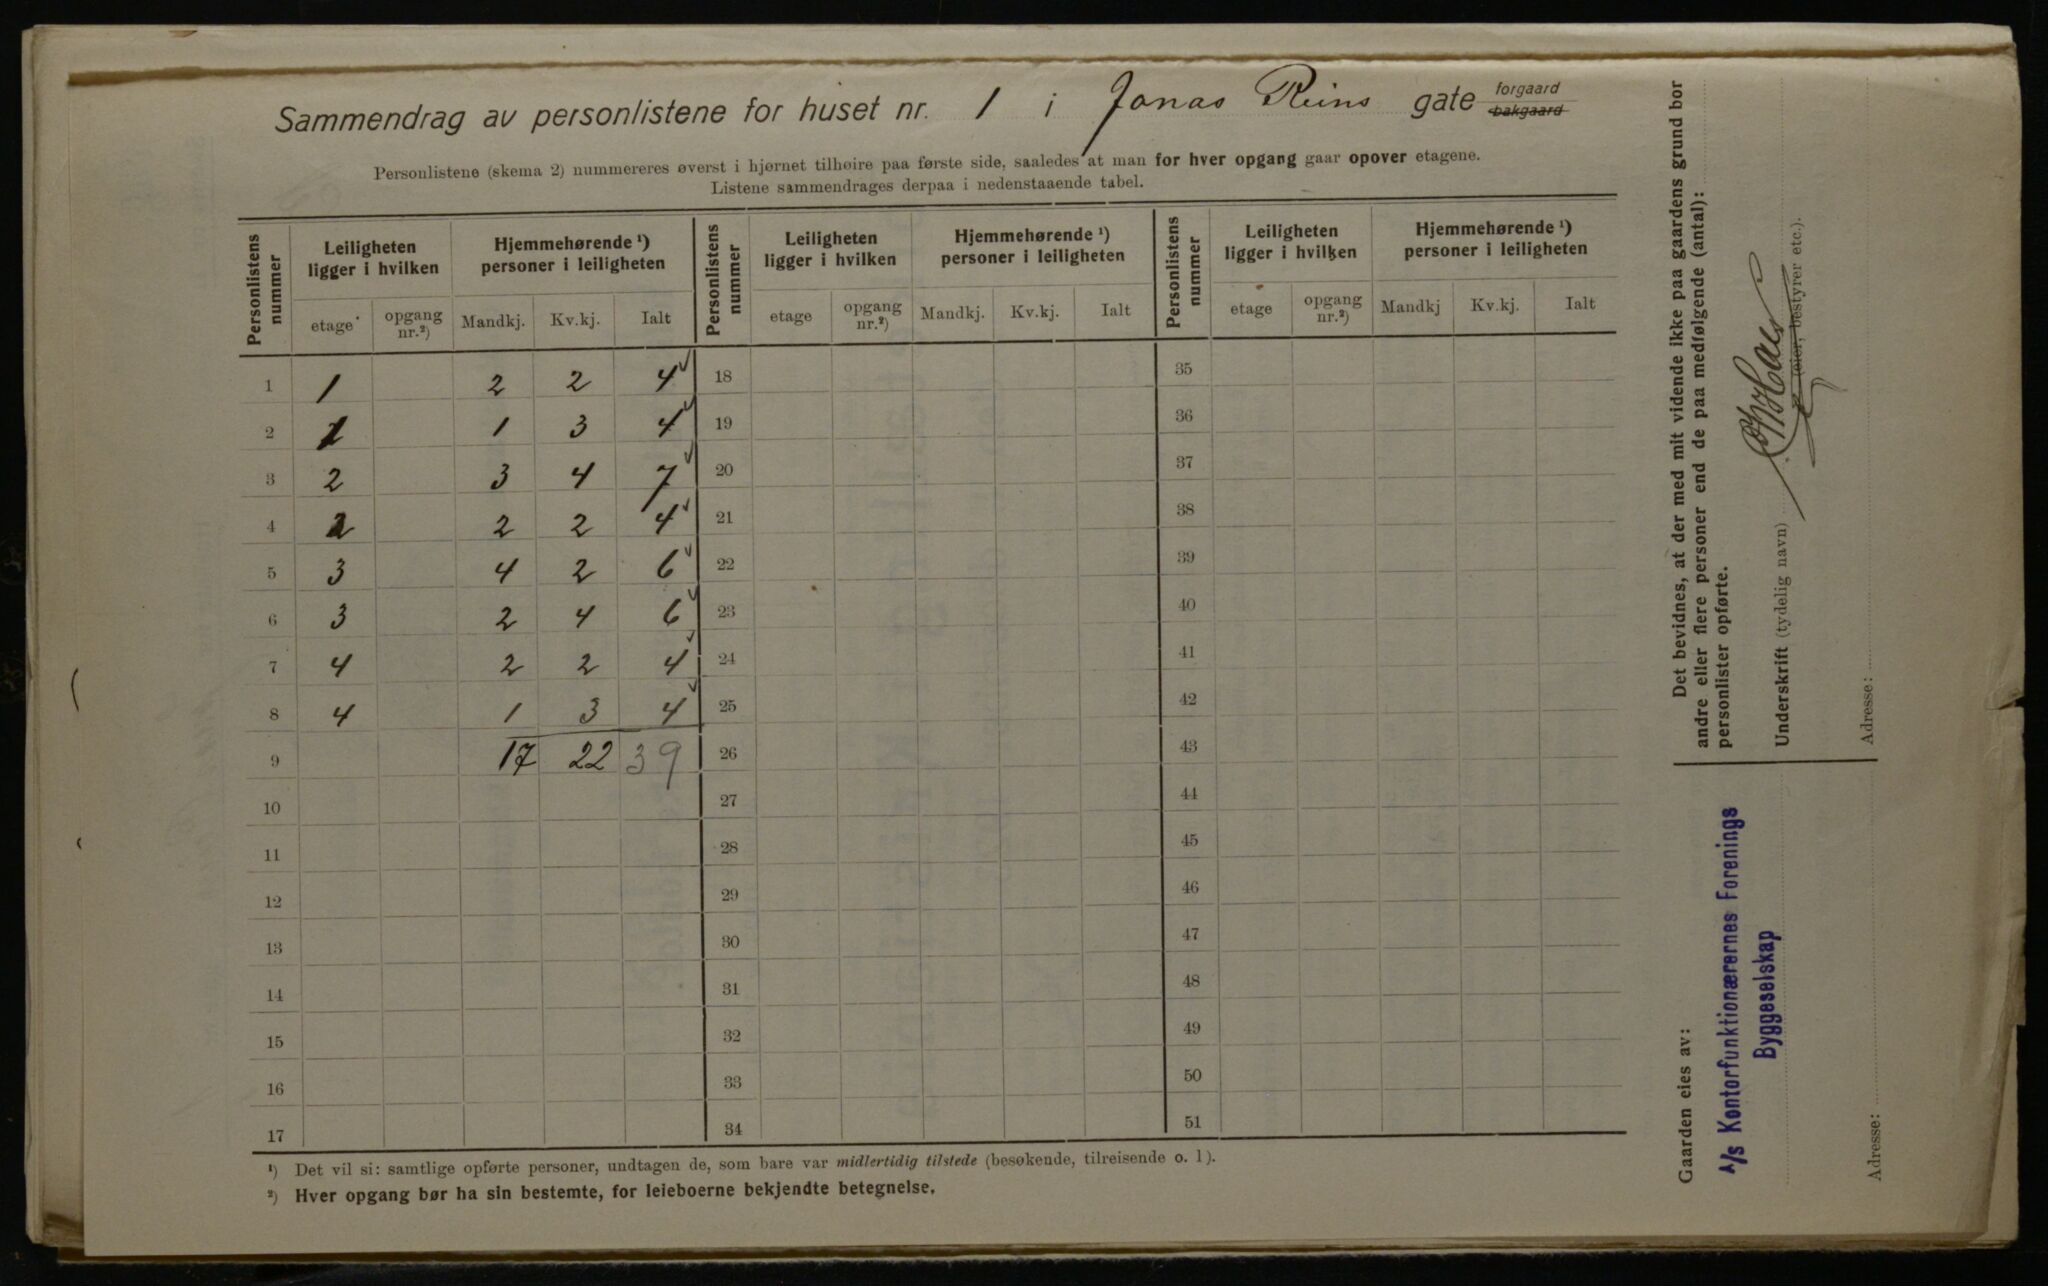 Sammendrag av personlistene for huset nr. 1 i Jonas Reins gate forgaard bakgaard
Personlistene (skema 2) nummereres øverst i hjørnet tilhøire paa første side, saaledes at man for hver opgang gaar opover etagene.
Listene sammendrages derpaa i nedenstaaende tabel.
Personlistens nummer Leiligheten ligger i hvilken Hjemmehørende ¹) personer i leiligheten Personlistens nummer Leiligheten ligger i hvilken Hjemmehørende ¹) personer i leiligheten Personlistens nummer Leiligheten ligger i hvilken Hjemmehørende ¹) personer i leiligheten
etage opgang nr.²) Mandkj. Kv.kj. Ialt etage opgang nr.²) Mandkj. Kv.kj. Ialt etage opgang nr.²) Mandkj Kv.kj. Ialt
1 1 2 2 4 18 35
2 1 1 3 4 19 36
3 2 3 4 7 20 37
4 2 2 2 4 21 38
5 3 4 2 6 22 39
6 3 2 4 6 23 40
7 4 2 2 4 24 41
8 4 1 3 4 25 42
9 17 22 39 26 43
10 27 44
11 28 45
12 29 46
13 30 47
14 31 48
15 32 49
16 33 50
17 34 51
¹) Det vil si: samtlige opførte personer, undtagen de, som bare var midlertidig tilstede (besøkende, tilreisende o. l).
²) Hver opgang bør ha sin bestemte, for leieboerne bekjendte betegnelse.
Det bevidnes, at der med mit vidende ikke paa gaardens grund bor
andre eller flere personer end de paa medfølgende (antal):
personlister opførte.
Underskrift (tydelig navn)
(eier, bestyrer etc.).
Adresse:
Gaarden eies av:
A/s Kontorfunktionærernes Forenings
Byggeselskap
Adresse: